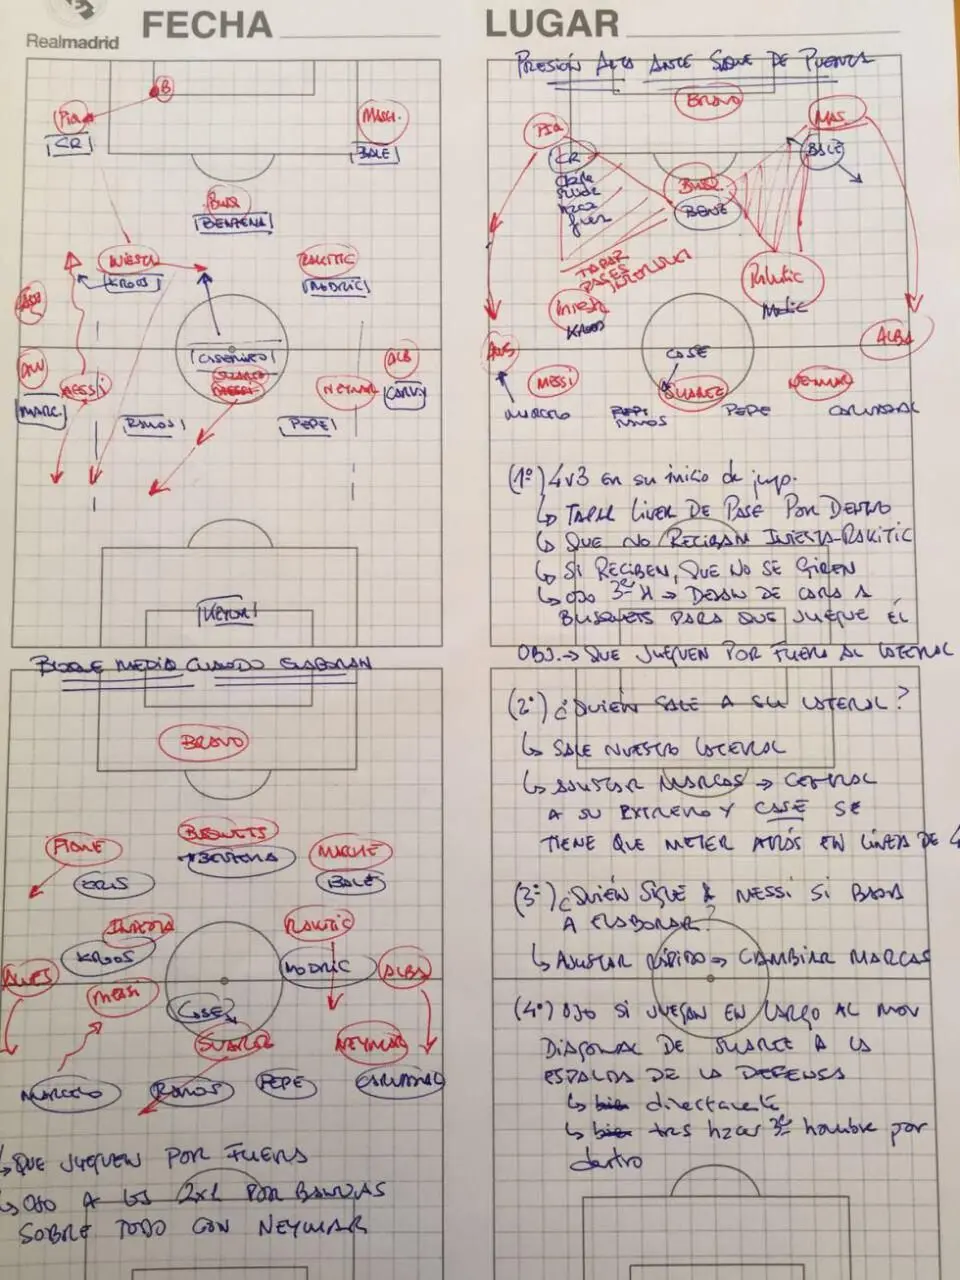 Realmadrid
FECHA
B
PIQ
CR
MASCH.
BALE
BUSQ
BENZEMA
INIESTA
KROOS
RAKITIC
MODRIC
CASEMIRO
SUAREZ
MESSI
MARC
NEYMAR
ALB
CARVJ
RAMOS
PEPE
KEYLOR
BLOQUE MEDIO CUANDO ELABORAN
BRAVO
PIQUE
CRIS
BUSQUETS
BENZEMA
MARCHE
BALE
INIESTA
KROOS
RAKITIC
MODRIC
ALVES
MESSI
ALBA
CASE
SUAREZ
NEYMAR
MARCELO
RAMOS
PEPE
CARVAJAL
↳ QUE JUEGUEN POR FUERA
↳ OJO A LOS 2x1 POR BANDAS
SOBRE TODO CON NEYMAR
LUGAR
PRESIÓN ALTA ANTE SAQUE DE PUERTA
BRAVO
PIQ
MAS.
CR
BALE
hacia
fuera
BUSQ.
BENZ
TAPAR
PASES
INTERIORES
Iniesta
KROOS
Rakitic
Modric
ALVES
CASE
ALBA
MESSI
SUAREZ
NEYMAR
MARCELO
RAMOS
PEPE
CARVAJAL
(1º) 4v3 en su inicio de juego.
↳ TAPAR LINEA DE PASE POR DENTRO
↳ QUE NO RECIBAN INIESTA-RAKITIC
↳ SI RECIBEN, QUE NO SE GIREN
↳ OJO 3er H → DEJAN DE CARA A
BUSQUETS PARA QUE JUEGUE ÉL
OBJ. → QUE JUEGUEN POR FUERA AL LATERAL
(2º) ¿QUIÉN SALE A SU LATERAL?
↳ SALE NUESTRO LATERAL
↳ AJUSTAR MARCAS → CENTRAL
A SU EXTREMO Y CASE SE
TIENE QUE METER ATRÁS EN LÍNEA DE 4
(3º) ¿QUIÉN SIGUE A MESSI SI BAJA
A ELABORAR?
↳ AJUSTAR RÁPIDO → CAMBIAR MARCAS
(4º) OJO SI JUEGAN EN LARGO AL MOV
DIAGONAL DE SUAREZ A LA
ESPALDA DE LA DEFENSA
↳ bien directamente
↳ bien tras hacer 3er hombre por
dentro